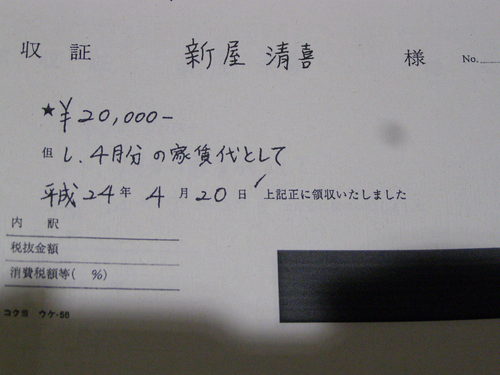 収 証 新屋 清喜 様 No.
★¥20,000-
但し、4月分の家賃代として
平成24年4月20日 上記正に領収いたしました
内 訳
税抜金額
消費税額等( %)
コクヨ ウケ-56